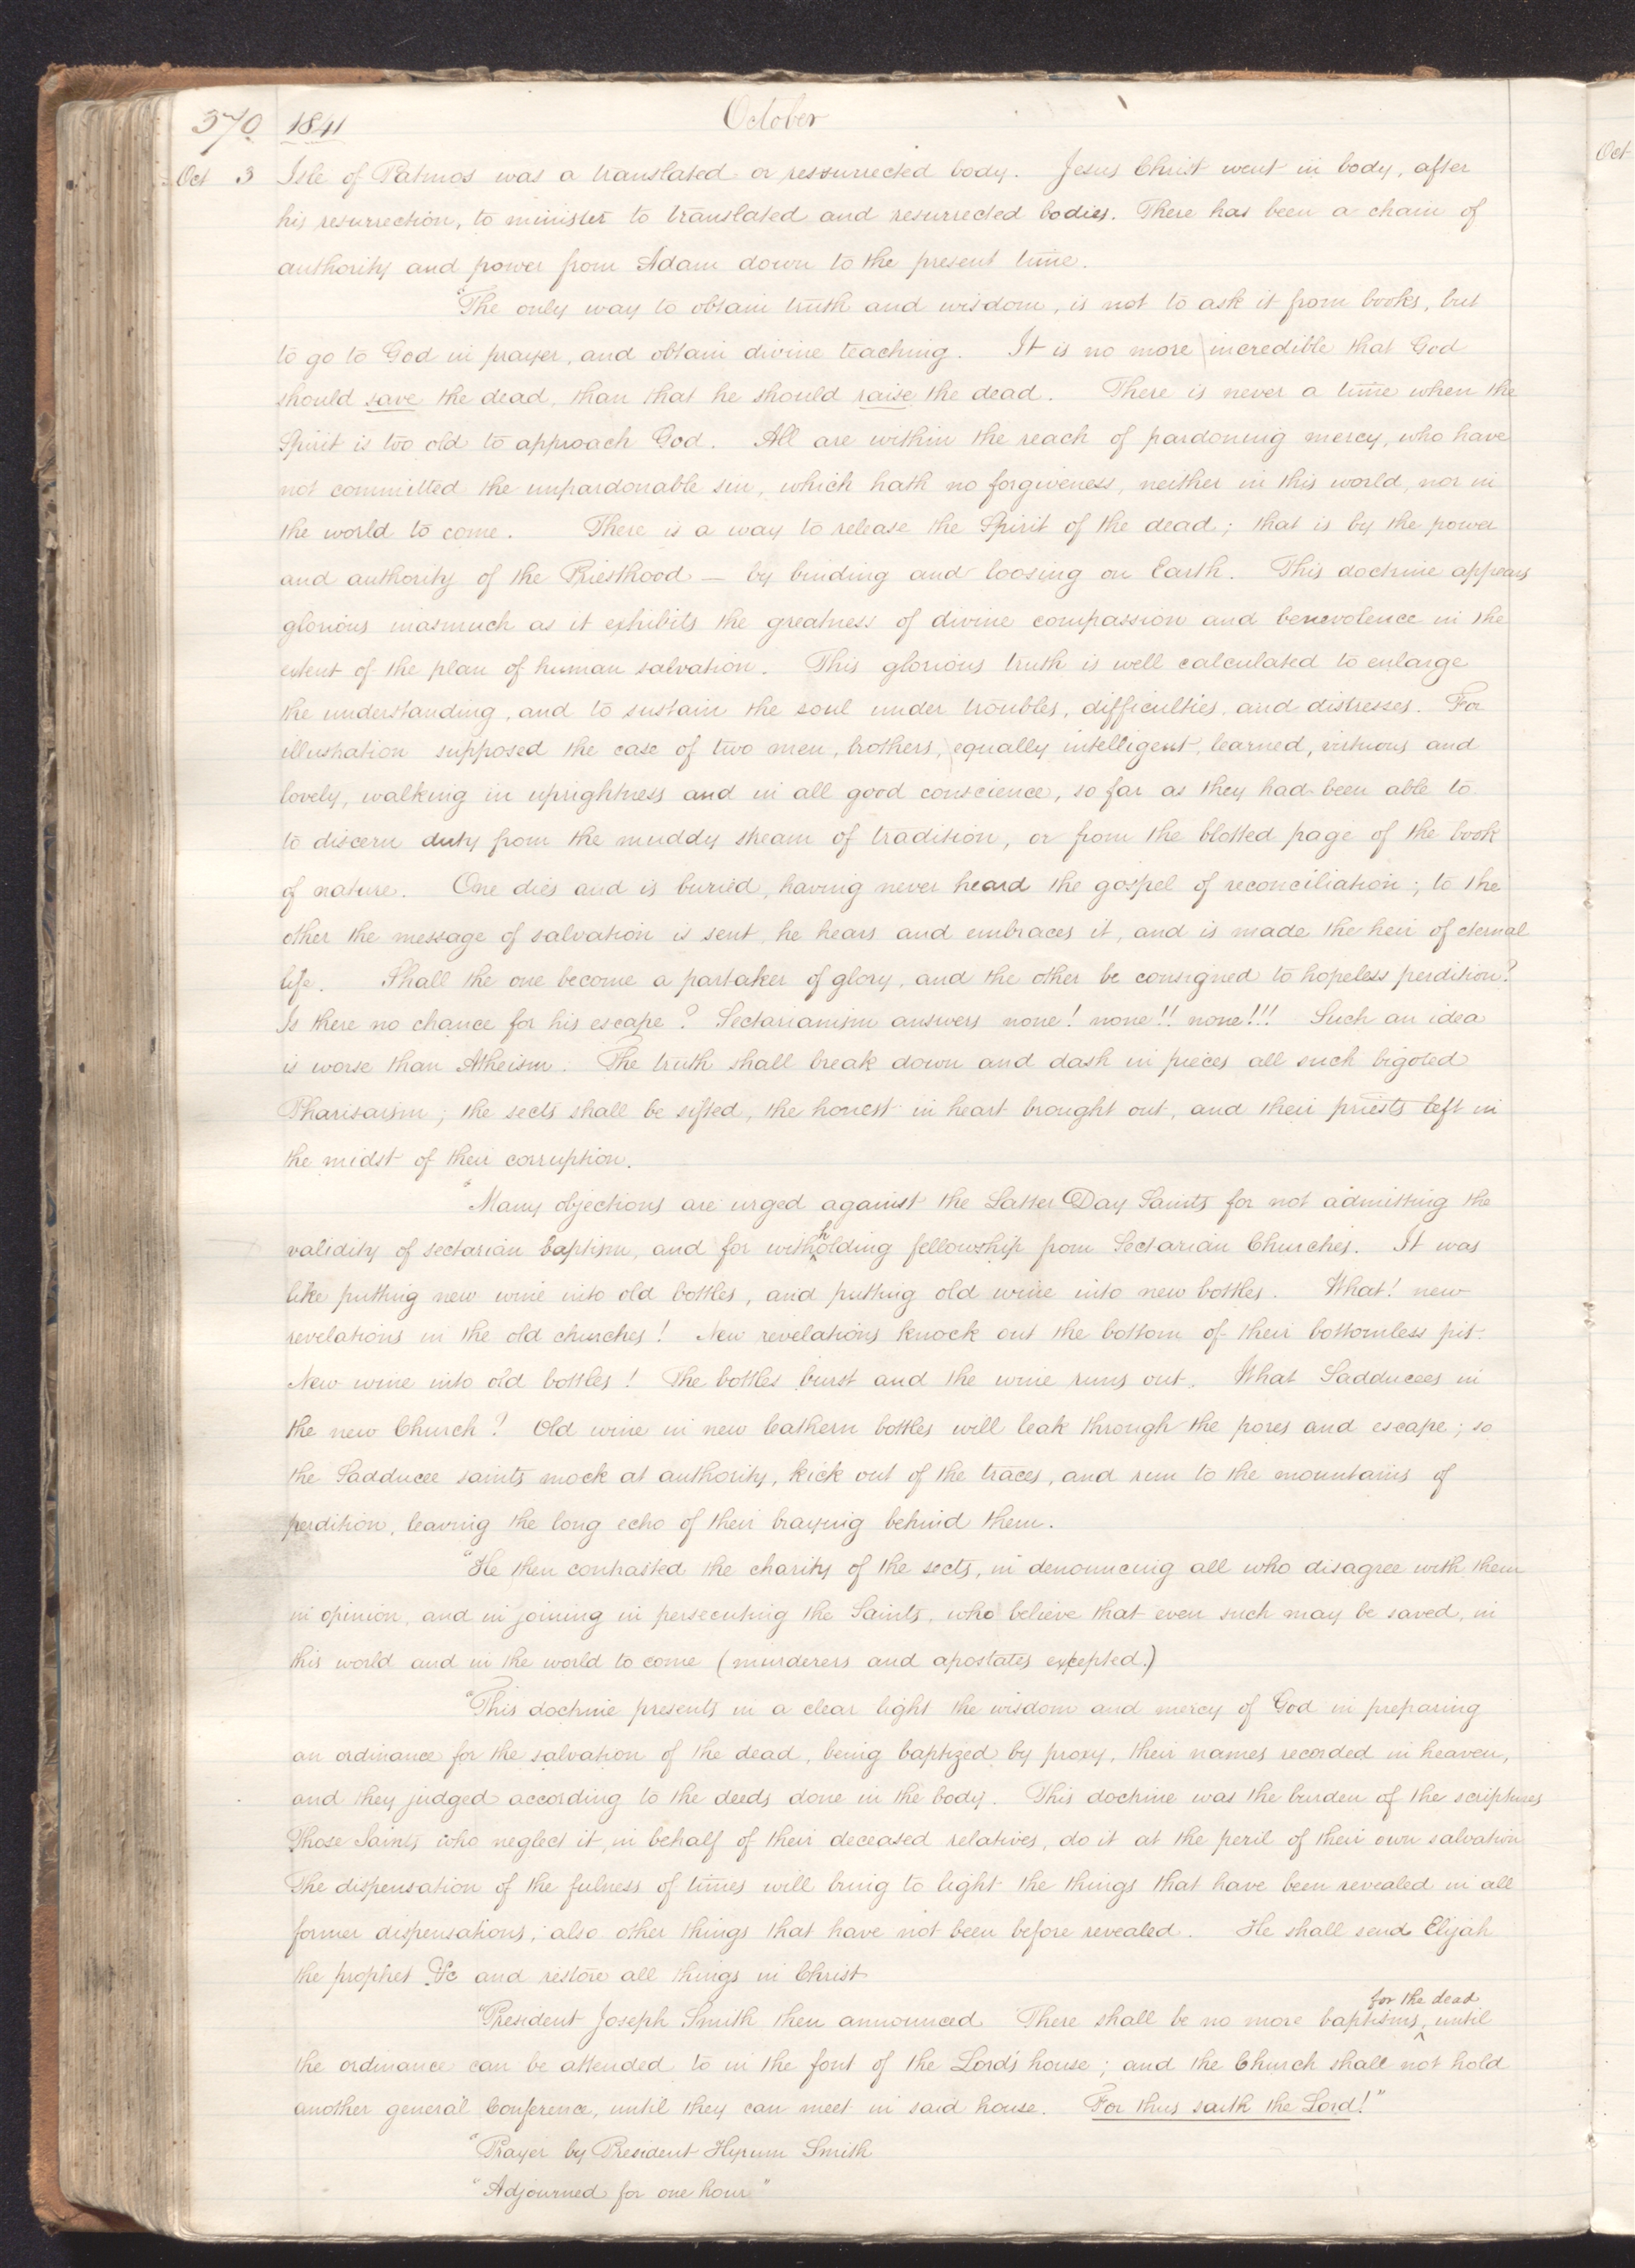 370 1841 October
Oct 3 Isle of Patmos was a translated or ressurrected body. Jesus Christ went in body, after
his resurrection, to minister to translated and resurrected bodies. There has been a chain of
authority and power from Adam down to the present time.
"The only way to obtain truth and wisdom, is not to ask it from books, but
to go to God in prayer, and obtain divine teaching. It is no more incredible that God
should save the dead, than that he should raise the dead. There is never a time when the
Spirit is too old to approach God. All are within the reach of pardoning mercy, who have
not committed the unpardonable sin, which hath no forgiveness, neither in this world, nor in
the world to come. There is a way to release the Spirit of the dead; that is by the power
and authority of the Priesthood — by binding and loosing on Earth. This doctrine appears
glorious inasmuch as it exhibits the greatness of divine compassion and benevolence in the
extent of the plan of human salvation. This glorious truth is well calculated to enlarge
the understanding, and to sustain the soul under troubles, difficulties, and distresses. For
illustration supposed the case of two men, brothers, equally intelligent, learned, virtuous and
lovely, walking in uprightness and in all good conscience, so far as they had been able to
to discern duty from the muddy stream of tradition, or from the blotted page of the book
of nature. One dies and is buried, having never heard the gospel of reconciliation; to the
other the message of salvation is sent, he hears and embraces it, and is made the heir of eternal
life. Shall the one become a partaker of glory, and the other be consigned to hopeless perdition?
Is there no chance for his escape? Sectarianism answers none! none!! none!!! Such an idea
is worse than Atheism. The truth shall break down and dash in pieces all such bigoted
Pharisaism; the sects shall be sifted, the honest in heart brought out, and their priests left in
the midst of their corruption.
"Many objections are urged against the Latter Day Saints for not admitting the
validity of sectarian baptism, and for withholding fellowship from Sectarian Churches. It was
like putting new wine into old bottles, and putting old wine into new bottles. What! new
revelations in the old churches! New revelations knock out the bottom of their bottomless pit.
New wine into old bottles! The bottles burst and the wine runs out. What Sadducees in
the new Church? Old wine in new leathern bottles will leak through the pores and escape; so
the Sadducee saints mock at authority, kick out of the traces, and run to the mountains of
perdition, leaving the long echo of their braying behind them.
"He then contrasted the charity of the sects, in denouncing all who disagree with them
in opinion, and in joining in persecuting the Saints, who believe that even such may be saved, in
this world and in the world to come (murderers and apostates excepted.)
"This doctrine presents in a clear light the wisdom and mercy of God in preparing
an ordinance for the salvation of the dead, being baptized by proxy, their names recorded in heaven,
and they judged according to the deeds done in the body. This doctrine was the burden of the scriptures
Those Saints who neglect it, in behalf of their deceased relatives, do it at the peril of their own salvation
The dispensation of the fulness of times will bring to light the things that have been revealed in all
former dispensations; also other things that have not been before revealed. He shall send Elijah
the prophet &c and restore all things in Christ
"President Joseph Smith then announced There shall be no more baptisms for the dead, until
the ordinance can be attended to in the font of the Lord's house; and the Church shall not hold
another general Conference, until they can meet in said house. For thus saith the Lord!"
"Prayer by President Hyrum Smith
"Adjourned for one hour"
Oct